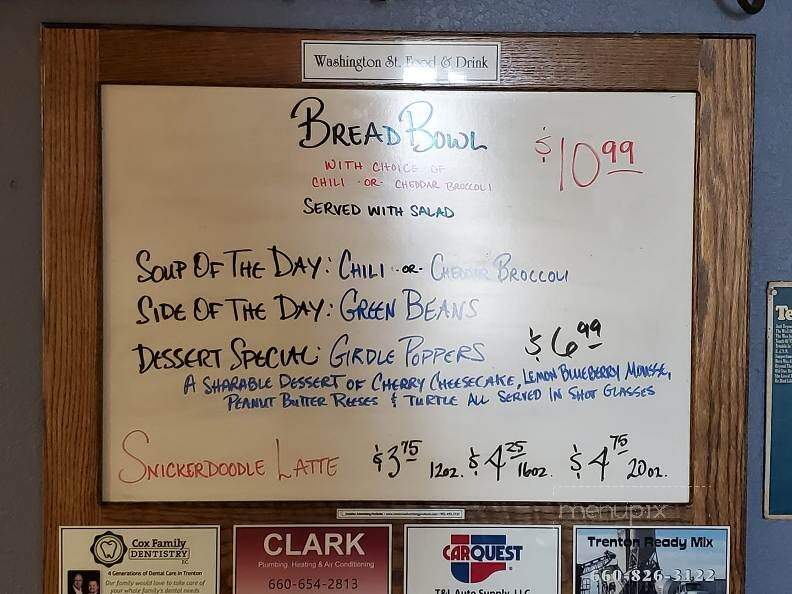 Washington St. Food & Drink
BREAD BOWL
$10 99
WITH CHOICE OF
CHILI -OR- CHEDDAR BROCCOLI
SERVED WITH SALAD
SOUP OF THE DAY: CHILI -OR- CHEDDAR BROCCOLI
SIDE OF THE DAY: GREEN BEANS
DESSERT SPECIAL: GIRDLE POPPERS $6 99
A SHARABLE DESSERT OF CHERRY CHEESECAKE, LEMON BLUEBERRY MOUSSE,
PEANUT BUTTER REESES & TURTLE ALL SERVED IN SHOT GLASSES
SNICKERDOODLE LATTE $3 75 12oz. $4 25 16oz. $4 75 20oz.
menupix
Cox Family
DENTISTRY
4 Generations of Dental Care in Trenton
Our family would love to take care of
your whole family's dental needs
CLARK
Plumbing, Heating & Air Conditioning
660-654-2813
CARQUEST
T&L Auto Supply, LLC
Trenton Ready Mix
660-826-3122
Te